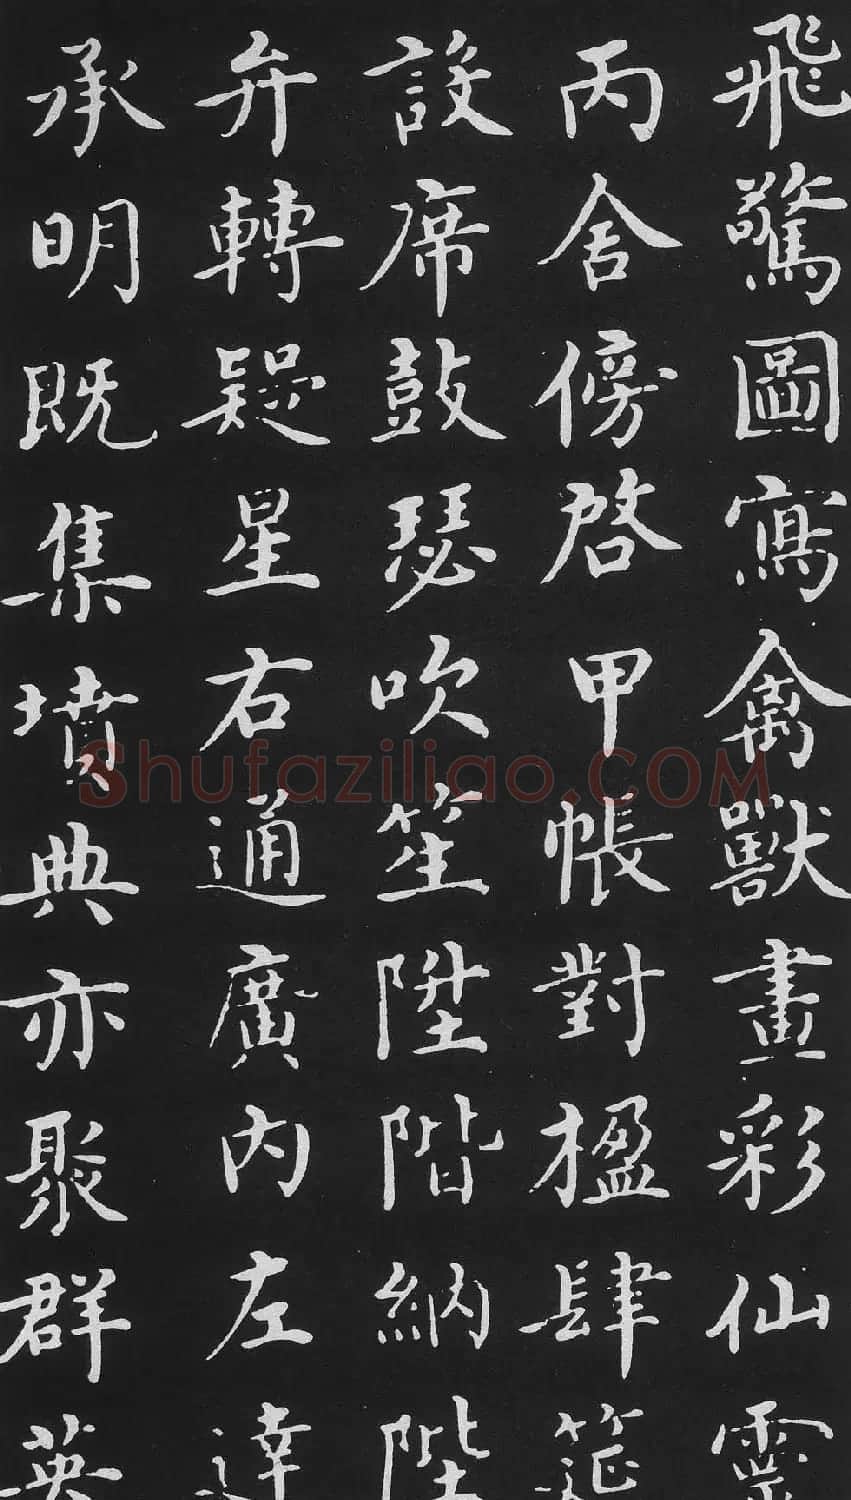 飛驚圖寫禽獸畫彩仙靈
丙舍傍啓甲帳對楹肆筵
設席鼓瑟吹笙陞階納陛
弁轉疑星右通廣內左達
承明既集墳典亦聚群英
Shufaziliao.COM